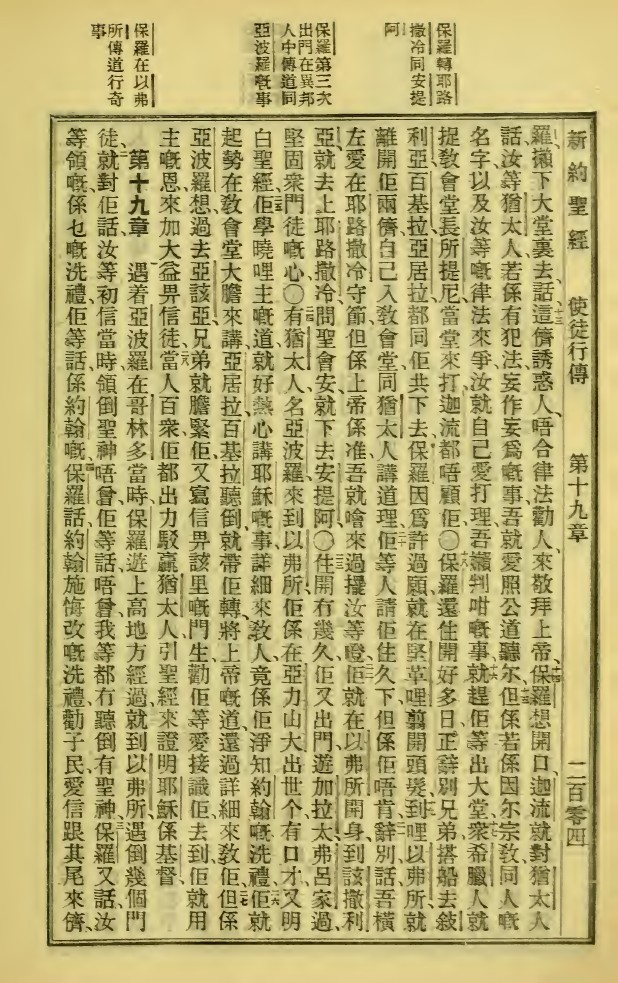 保羅轉耶路
撒冷同安提
阿
保羅第三次
出門在異邦
人中傳道同
亞波羅嘅事
保羅在以弗
所傳道行奇
事
新約聖經 使徒行傳 第十九章 二百零四
羅攋下大堂裏去、話、這儕誘惑人、唔合律法勸人來敬拜上帝、保羅想開口、迦流就對猶太人
話、汝等猶太人、若係有犯法妄作妄爲嘅事、吾就愛照公道聽尔、但係若係因尔宗敎同人嘅
名字、以及汝等嘅律法來爭、汝就自己愛打理、吾嬾判咁嘅事、就趕佢等出大堂、衆希臘人就
捉敎會堂長所提尼、當堂來打、迦流都唔顧佢○保羅還住開好多日、正辭別兄弟、搭船去敍
利亞、百基拉亞居拉都同佢共下去、保羅因爲許過願、就在堅革哩翦開頭髮、到哩以弗所、就
離開佢兩儕、自己入敎會堂、同猶太人講道理、佢等人請佢住久下、但係佢唔肯、辭別話、吾橫
左愛在耶路撒冷守節、但係上帝係准、吾就噲來過擺汝等、噔佢就在以弗所開身、到該撒利
亞、就去上耶路撒冷問聖會安、就下去安提阿○住開有幾久、佢又出門遊加拉太弗呂家過、
堅固衆門徒嘅心○有猶太人名亞波羅、來到以弗所、佢係在亞力山大出世个、有口才、又明
白聖經、佢學曉哩主嘅道、就好熱心講耶穌嘅事、詳細來敎人、竟係佢淨知約翰嘅洗禮、佢就
起勢在敎會堂大膽來講、亞居拉百基拉聽倒、就帶佢轉、將上帝嘅道、還過詳細來敎佢、但係
亞波羅想過去亞該亞、兄弟就膽緊佢、又寫信畀該里嘅門生、勸佢等愛接識佢、去到佢就用
主嘅恩、來加大益畀信徒、當人百衆、佢都出力駁贏猶太人、引聖經來證明耶穌係基督、
第十九章 遇着亞波羅在哥林多當時、保羅遊上高地方經過、就到以弗所、遇倒幾個門
徒、就對佢話、汝等初信當時、領倒聖神唔曾、佢等話、唔曾、我等都冇聽倒有聖神、保羅又話、汝
等領嘅、係乜嘅洗禮、佢等話、係約翰嘅、保羅話、約翰施悔改嘅洗禮、勸子民愛信跟其尾來儕、